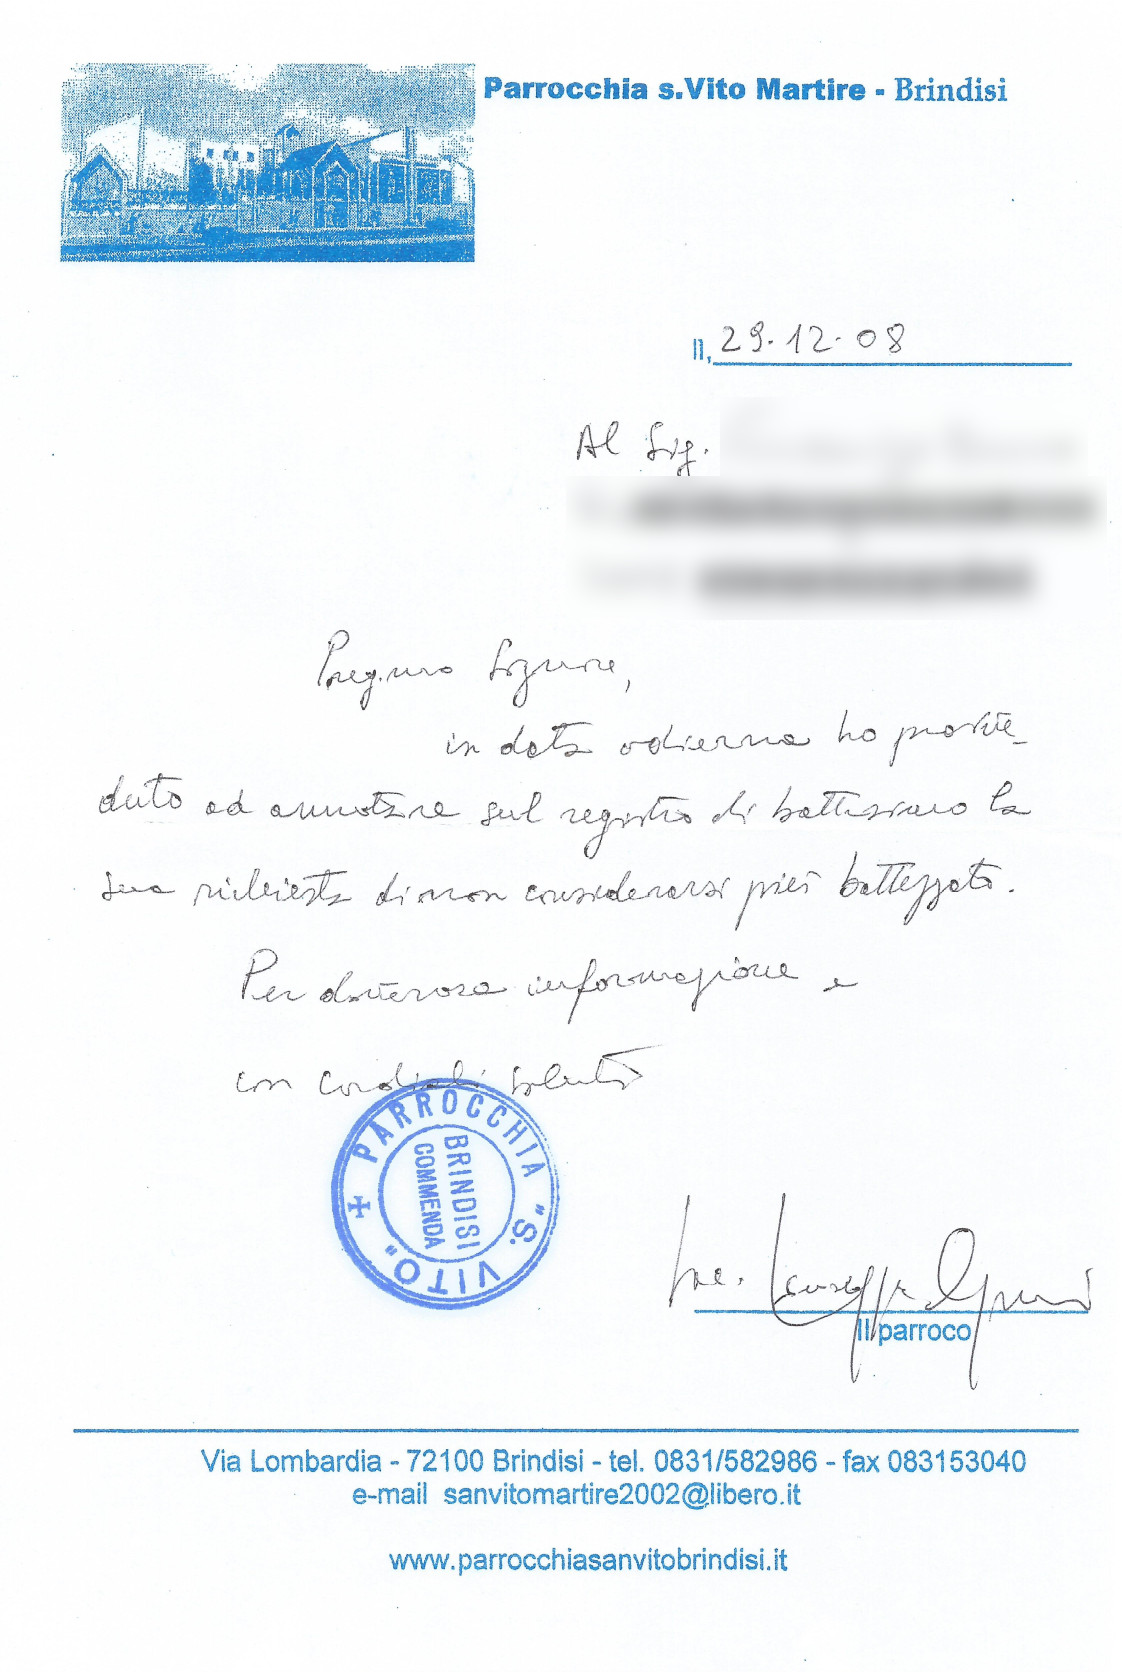 Parrocchia s.Vito Martire - Brindisi
lì, 29.12.08
Al Sig.
Preg.mo Signore,
in data odierna ho provve-
duto ad annotare sul registro di battesimo la
sua richiesta di non considerarsi più battezzato.
Per doverosa informazione e
con cordiali saluti
PARROCCHIA "S. VITO"
BRINDISI
COMMENDA
Sac. Giuseppe
Il parroco
Via Lombardia - 72100 Brindisi - tel. 0831/582986 - fax 083153040
e-mail sanvitomartire2002@libero.it
www.parrocchiasanvitobrindisi.it